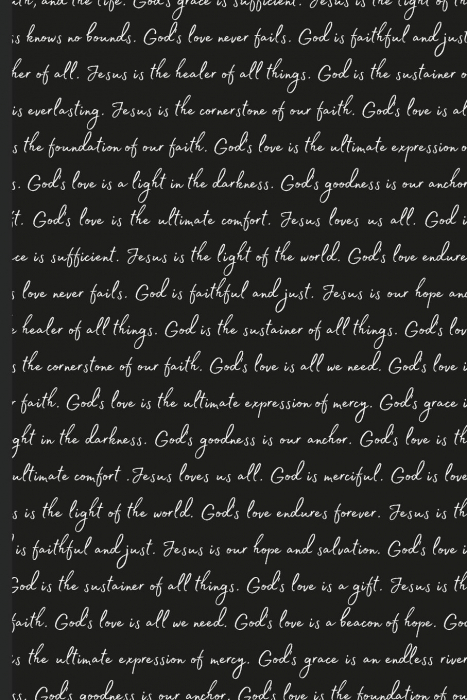 and the life. God's grace is sufficient. Jesus is the light of th
s knows no bounds. God's love never fails. God is faithful and just
her of all. Jesus is the healer of all things. God is the sustainer o
is everlasting. Jesus is the cornerstone of our faith. God's love is al
s the foundation of our faith. God's love is the ultimate expression o
s. God's love is a light in the darkness. God's goodness is our anchor
ft. God's love is the ultimate comfort. Jesus loves us all. God i
ce is sufficient. Jesus is the light of the world. God's love endure
s love never fails. God is faithful and just. Jesus is our hope an
healer of all things. God is the sustainer of all things. God's lov
s the cornerstone of our faith. God's love is all we need. God's love i
r faith. God's love is the ultimate expression of mercy. God's grace i
ght in the darkness. God's goodness is our anchor. God's love is th
ultimate comfort .Jesus loves us all. God is merciful. God is love
s is the light of the world. God's love endures forever. Jesus is th
is faithful and just. Jesus is our hope and salvation. God's love i
God is the sustainer of all things. God's love is a gift. Jesus is th
faith. God's love is all we need. God's love is a beacon of hope. Go
s the ultimate expression of mercy. God's grace is an endless river
ss. God's goodness is our anchor. God's love is the foundation of ou